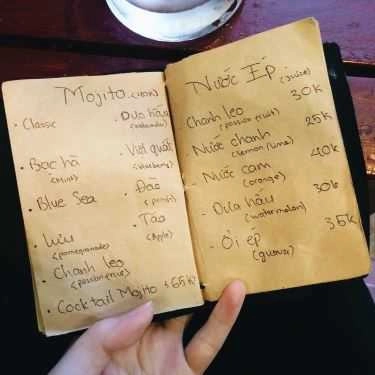 Mojito
Classic
Dưa hấu
(watermelon)
Bạc hà
(mint)
Việt quất
(blueberry)
Blue Sea
Đào
(peach)
Lựu
(pomegranate)
Táo
(Apple)
Chanh leo
(passion fruit)
Cocktail Mojito 65k
Nước Ép (juice)
Chanh leo 30k
(passion fruit)
Nước chanh 25k
(lemon/lime)
Nước cam 40k
(orange)
Dưa hấu 30k
(watermelon)
Ổi ép 35k
(guava)